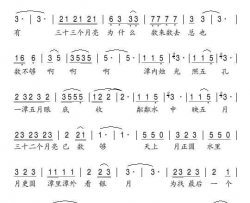 3· 3· | 21 21 21 21 | 6 3 33 | 7 7 7 7 | 3 3 | 3· |
有 三十三个月亮 为什么 数来数去 总也
16 6 | 3 5 | 3535 | 5· | 5· | 5 1 5 1 | #3· | 1 5 1 |
数不够 啊 啊 啊 潭内烛光 照五孔
2 32 32 | 3555 | 1 2 2 | 2· | 2 2 2 1 | #3· | 1 5 1 | #3· |
一潭五月眼底 收 粼粼水中 映五月
23 23 23 | 2 21 | 1· | 1· | 5 5 0 | 1 5 1 | 5 5 0 |
三十二个月亮已 数够 天上 月正圆 水里
3 2 3 | 1 1 1 1 | 2 3 | 2· | 2· | 5 5 0 | 1 5 1 | 5 5 0 |
月更圆 潭里潭外 看 银 月 为找 最后 一个